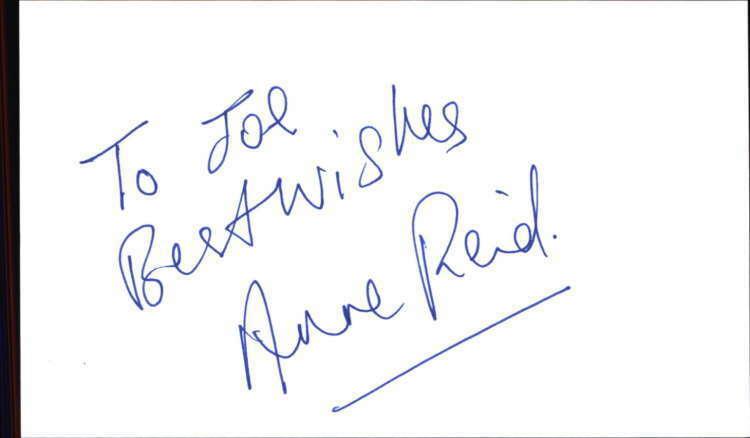 To Joe
Best wishes
Anne Reid.